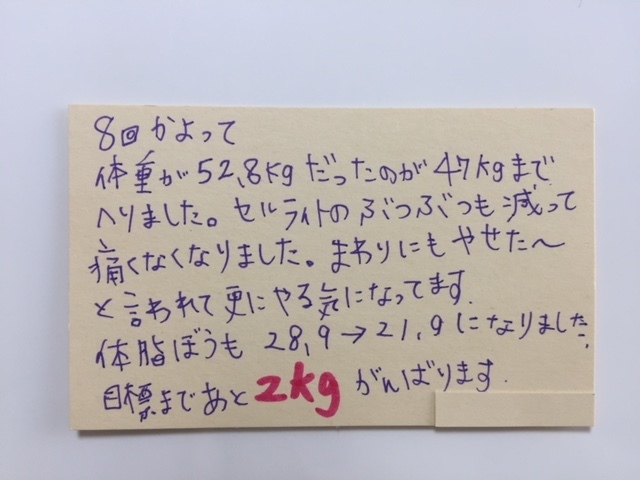 8回かよって
体重が52.8kgだったのが47kgまで
へりました。セルライトのぶつぶつも減って
痛くなくなりました。まわりにもやせた〜
と言われて更にやる気になってます.
体脂ぼうも 28,9→21,9になりました.
目標まであと2kgがんばります.